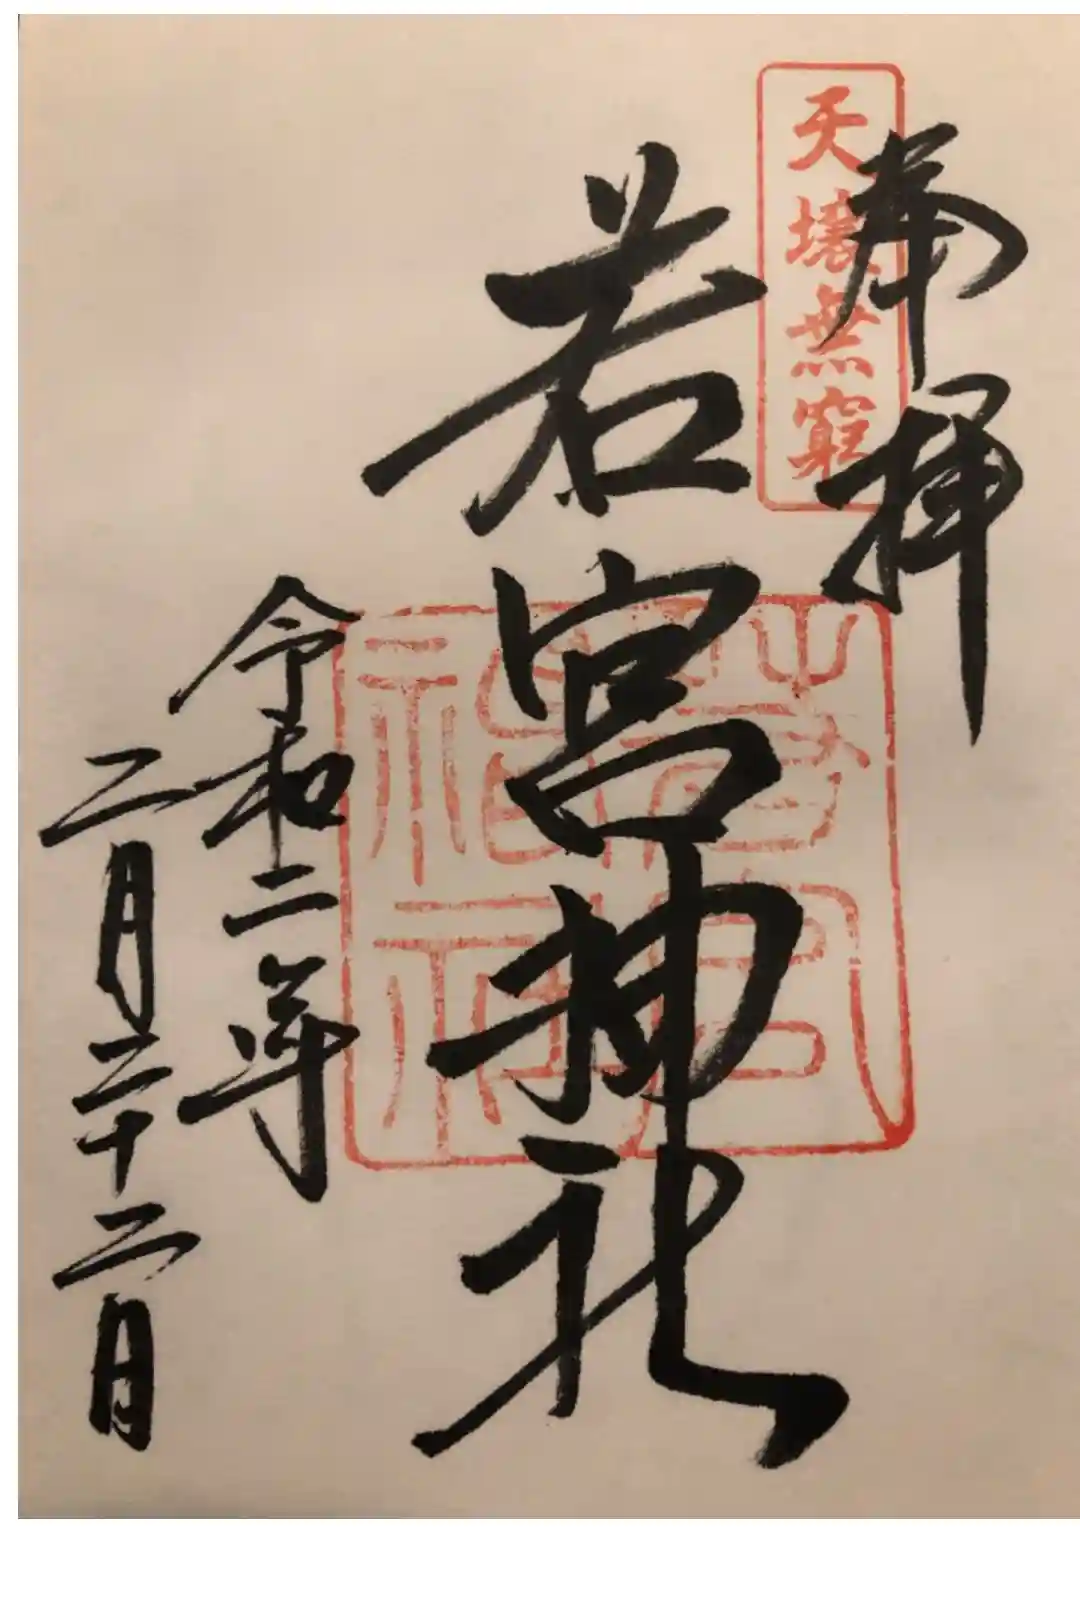 奉拝
天壌無窮
若宮神社
令和二年
二月二十二日